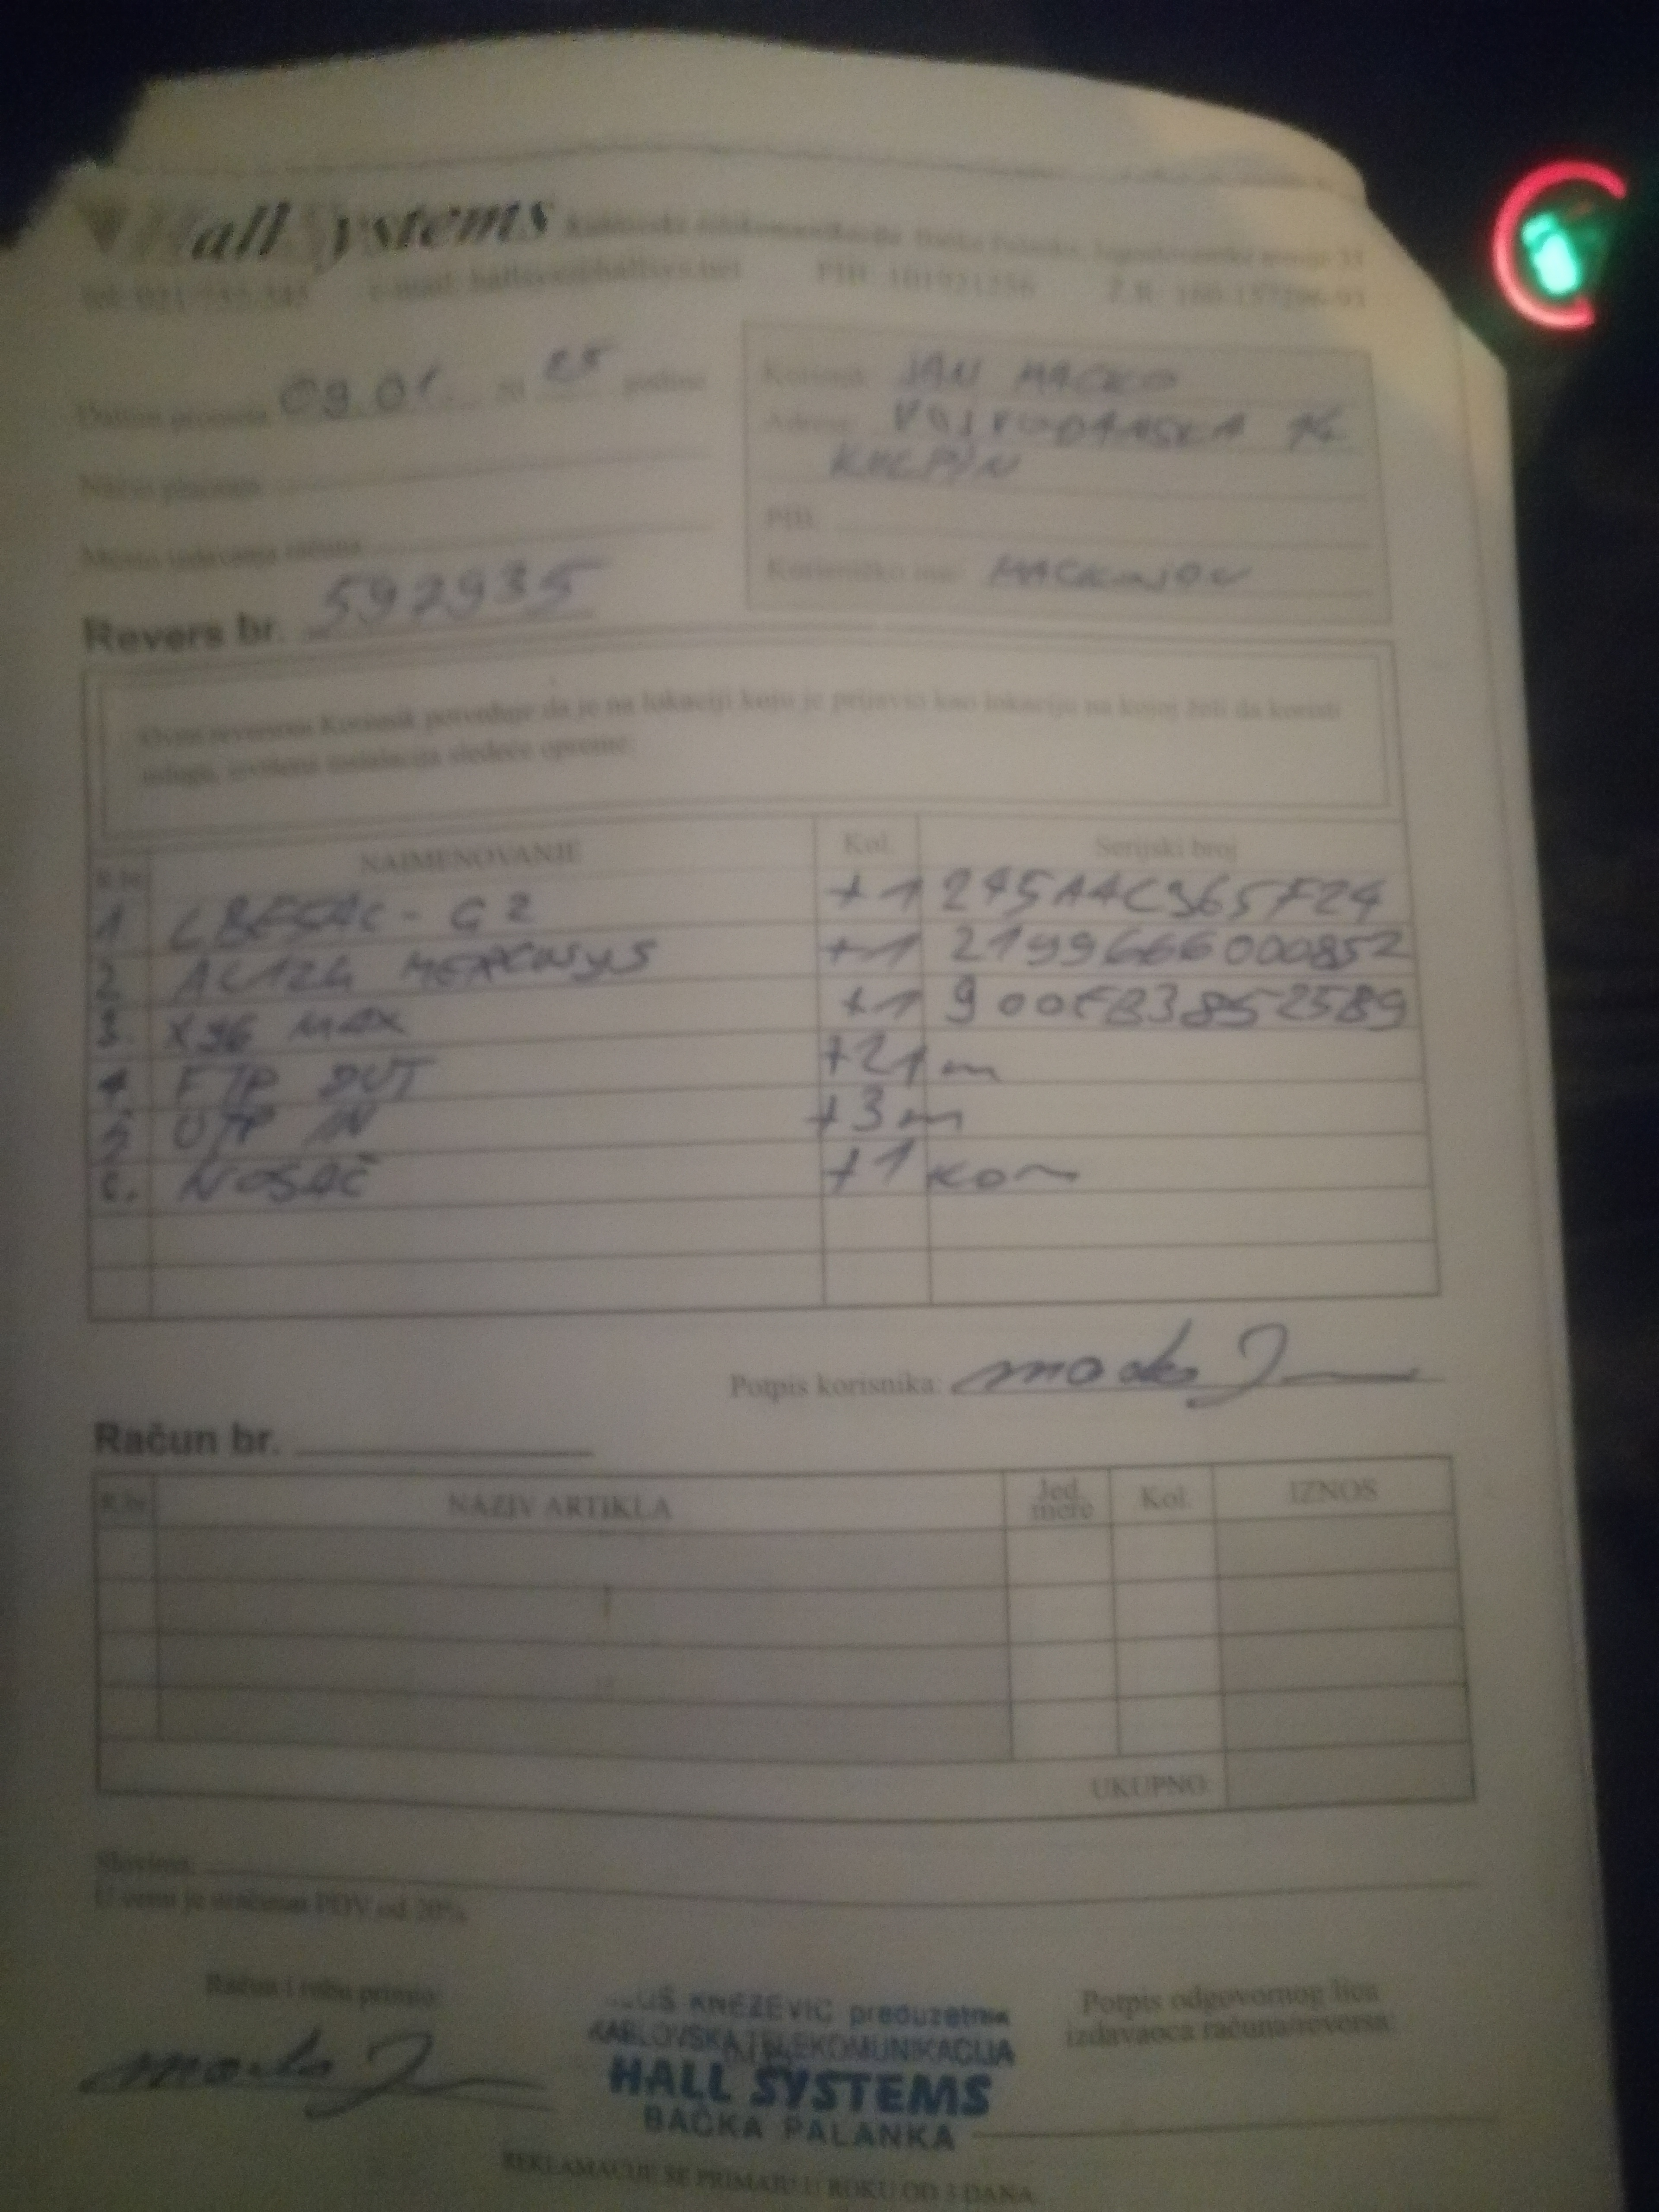 Hall Systems Kablovska telekomunikacija Bačka Palanka, Jugoslovenske armije
e-mail: hallsys@hallsys.net PIB: 101921256 Ž.R.
Datum prometa 09.01. 20 25 godine
Korisnik: JAN MACKO
Adresa: VOJVOĐANSKA 14
KULPIN
Način plaćanja
PIB:
Mesto izdavanja računa
Korisničko ime:
Revers br. 592935
Ovim reversom Korisnik potvrđuje da je na lokaciji koju je prijavio kao lokaciju na kojoj želi da koristi
uslugu, izvršena instalacija sledeće opreme:
R.br. NAIMENOVANJE Kol. Serijski broj
1. LBE5AC-G2 +1 245A4C965F24
2. AC12G MERCUSYS +1 2199666000852
3. X96 MAX +1 900EB3852589
4. FTP OUT +21 m
5. UTP IN +3 m
6. NOSAČ +1 kom
Potpis korisnika:
Račun br.
R.br. NAZIV ARTIKLA Jed. mere Kol. IZNOS
UKUPNO
Slovima:
U cenu je uračunat PDV od 20%
Račun i robu primio:
KNEZEVIC preduzetnik
KABLOVSKA TELEKOMUNIKACIJA
HALL SYSTEMS
BAČKA PALANKA
Potpis odgovornog lica
izdavaoca računa/reversa:
REKLAMACIJE SE PRIMAJU U ROKU OD 3 DANA